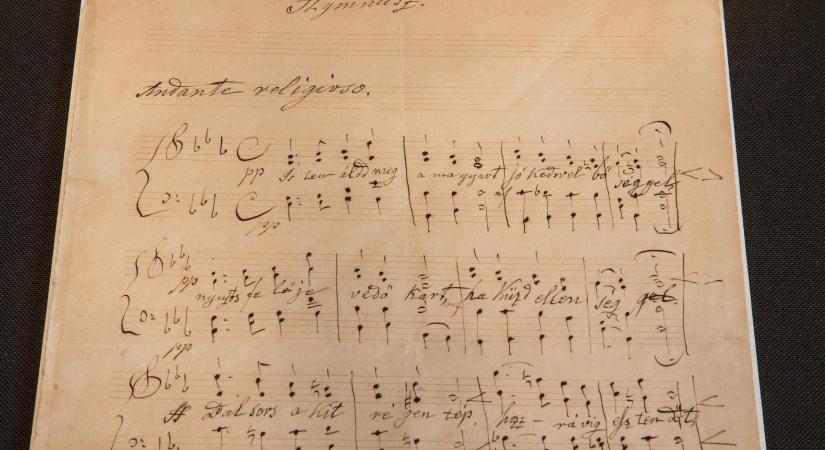 Hymnusz.
Andante religioso.
pp Is ten áldd meg a magyart jó kedvvel bő séggel
pp
pp nyujts fe léje védő kart, ha küzd ellen ség gel.
pp
Bal sors a kit ré gen tép, hoz – rá víg esz ten dőt,